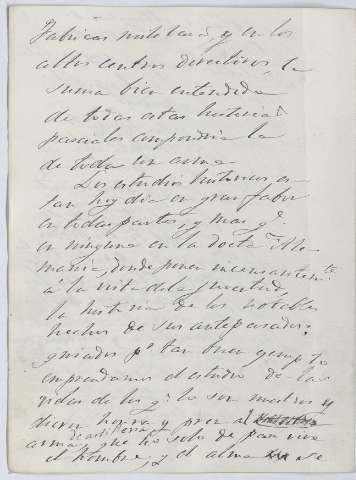 Fabricas militares, y en los
altos centros directivos, la
suma bien entendida
de todas estas historias
parciales compondria la
de toda un arma
Los estudios historicos es-
tan hoy dia en gran fabor
en todas partes, y mas qe
en ninguna en la docta Ale
mania, donde ponen incesantemte
á la vista de la juventud
la historia de los notables
hechos de sus antepasados:
guiados pr tan buen ejemplo
emprendamos el estudio de las
vidas de los q: lo son nuestros y
dieron honra y prez al
de artilleria
arma, que no solo de pan vive
el hombre, y el alma se